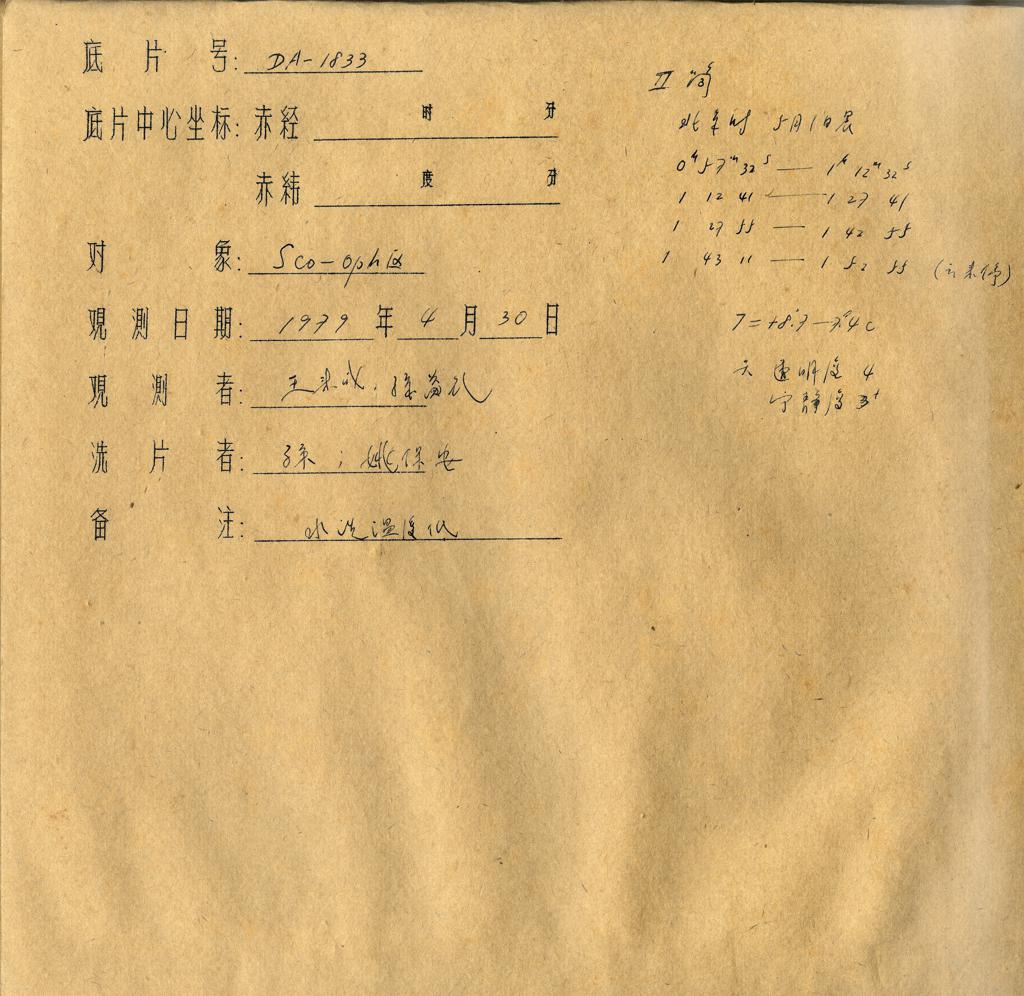 底片号: DA-1833
底片中心坐标: 赤经 时 分
赤纬 度 分
对象: Sco-Oph区
观测日期: 1979年4月30日
观测者: 王
洗片者: 孙; 姚保安
备注: 水洗温度低
II 筒
北京时 5月1日晨
0h 57m 32s — 1h 12m 32s
1 12 41 — 1 27 41
1 27 55 — 1 42 55
1 43 11 — 1 52 55 (云来停)
T=+8.°7—7.°4C
云 透明度 4
宁静度 3+